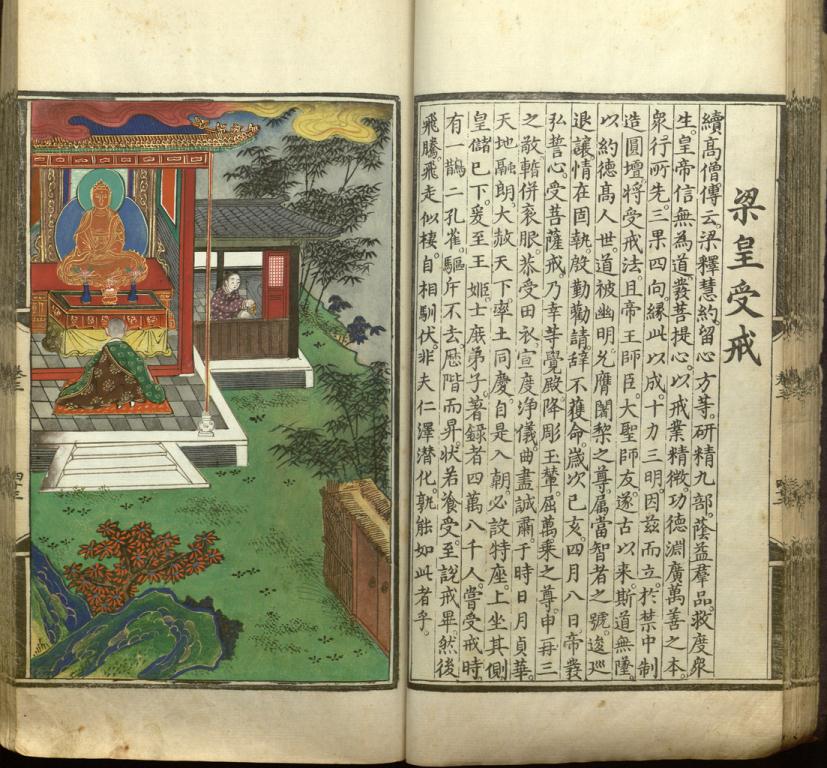 梁皇受戒
續高僧傳云。梁釋慧約。留心方等。研精九部。蔭益羣品。救度衆
生。皇帝信無為道。發菩提心。以戒業精微功德淵廣萬善之本。
衆行所先。三果四向。緣此以成。十力三明。因茲而立。於禁中制
造圓壇將受戒法。且帝王師臣。大聖師友。遂古以來。斯道無墜。
以約德高人世。道被幽明。允膺闍黎之尊。屬當智者之號。逡巡
退讓。情在固執。殷勤勸請。辭不獲命。歲次己亥。四月八日帝發
弘誓心。受菩薩戒。乃幸等覺殿。降彫玉輦。屈萬乘之尊。申再三
之敬。暫併袞服。恭受田衣。宣度淨儀。曲盡誠肅。于時日月貞華。
天地融朗。大赦天下。率土同慶。自是入朝。必設特座。上坐其側
皇儲已下。爰至王姬。士庶弟子。著錄者四萬八千人。嘗受戒時。
有一鵲二孔雀。驅斥不去。歷階而昇。狀若飡受。至說戒畢。然後
飛騰。飛走似棲。自相馴伏。非夫仁澤潛化。孰能如此者乎。
卷三
四十三